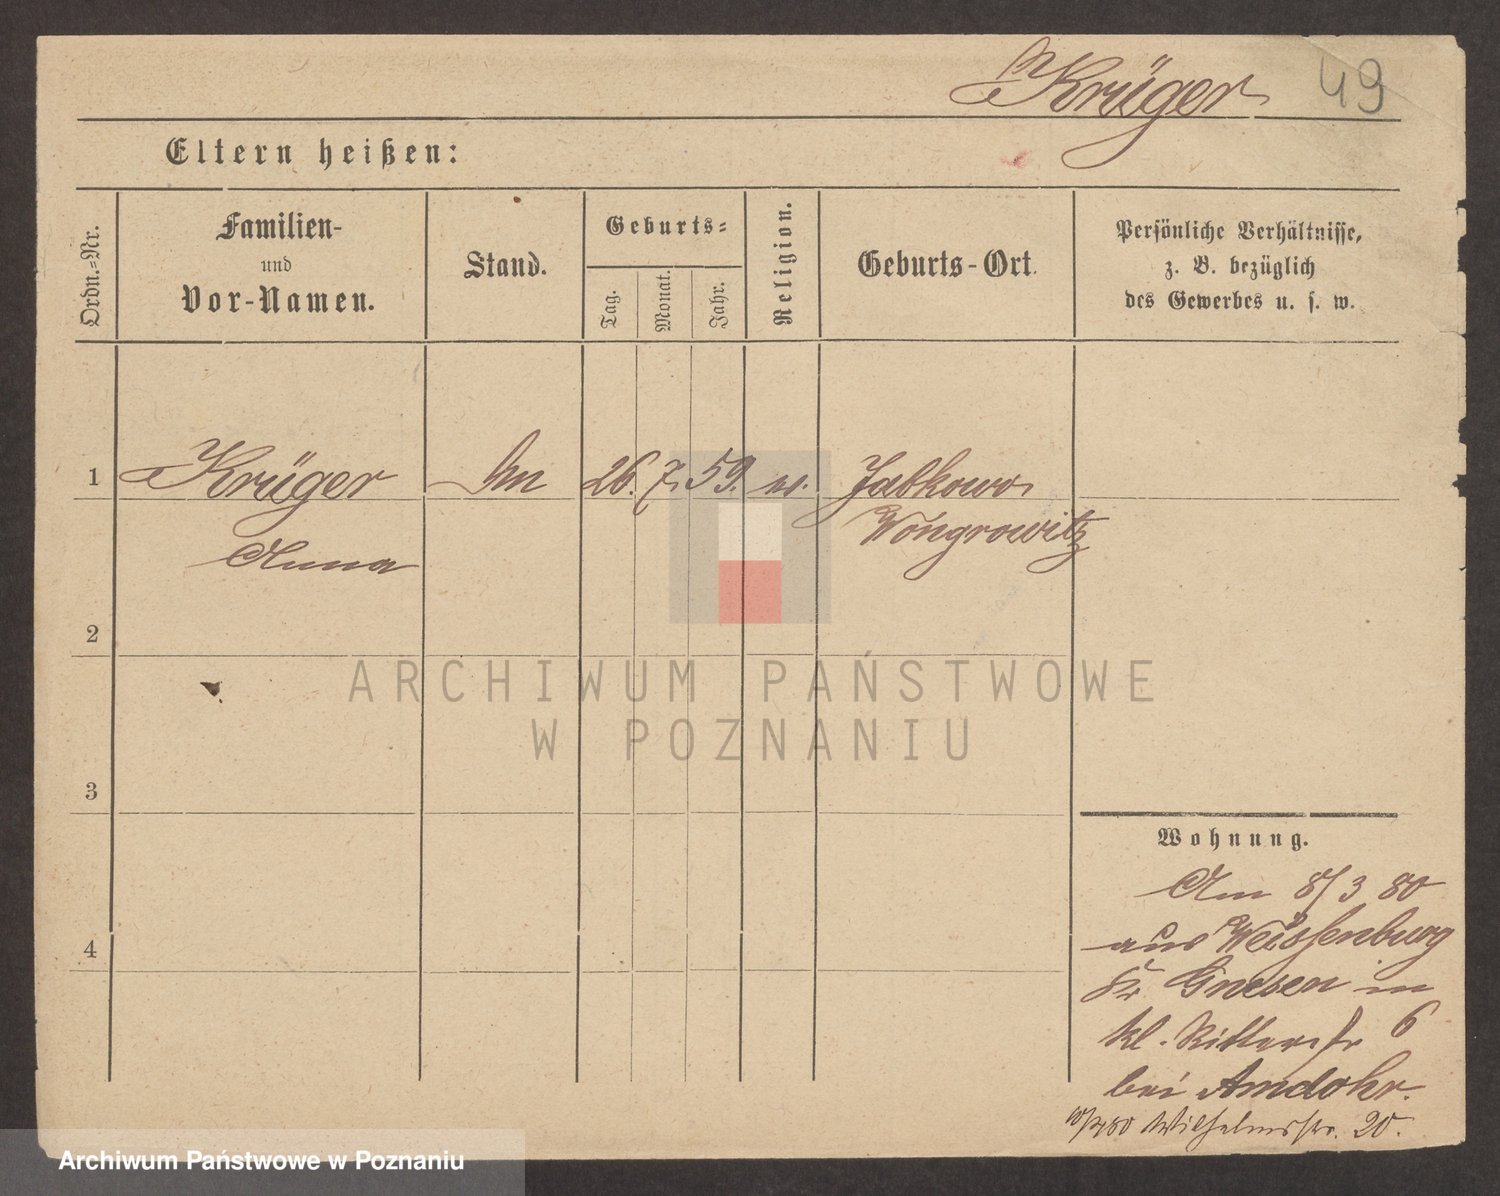 Krüger 49
Eltern heißen:
Ordn.=Nr.
Familien-
und
Vor-Namen.
Stand.
Geburts=
Tag.
Monat.
Jahr.
Religion.
Geburts-Ort.
Persönliche Verhältnisse,
z. B. bezüglich
des Gewerbes u. s. w.
1 Krüger 26. 7. 59. ev. Jabkowo
Wongrowitz
Anna
2
3
4
Wohnung.
Am 8/3 80
aus Weissenburg
Kr Gnesen in
kl. Ritterstr 6
bei Amdohr.
Wilhelmsstr. 20.
ARCHIWUM PAŃSTWOWE
W POZNANIU
Archiwum Państwowe w Poznaniu